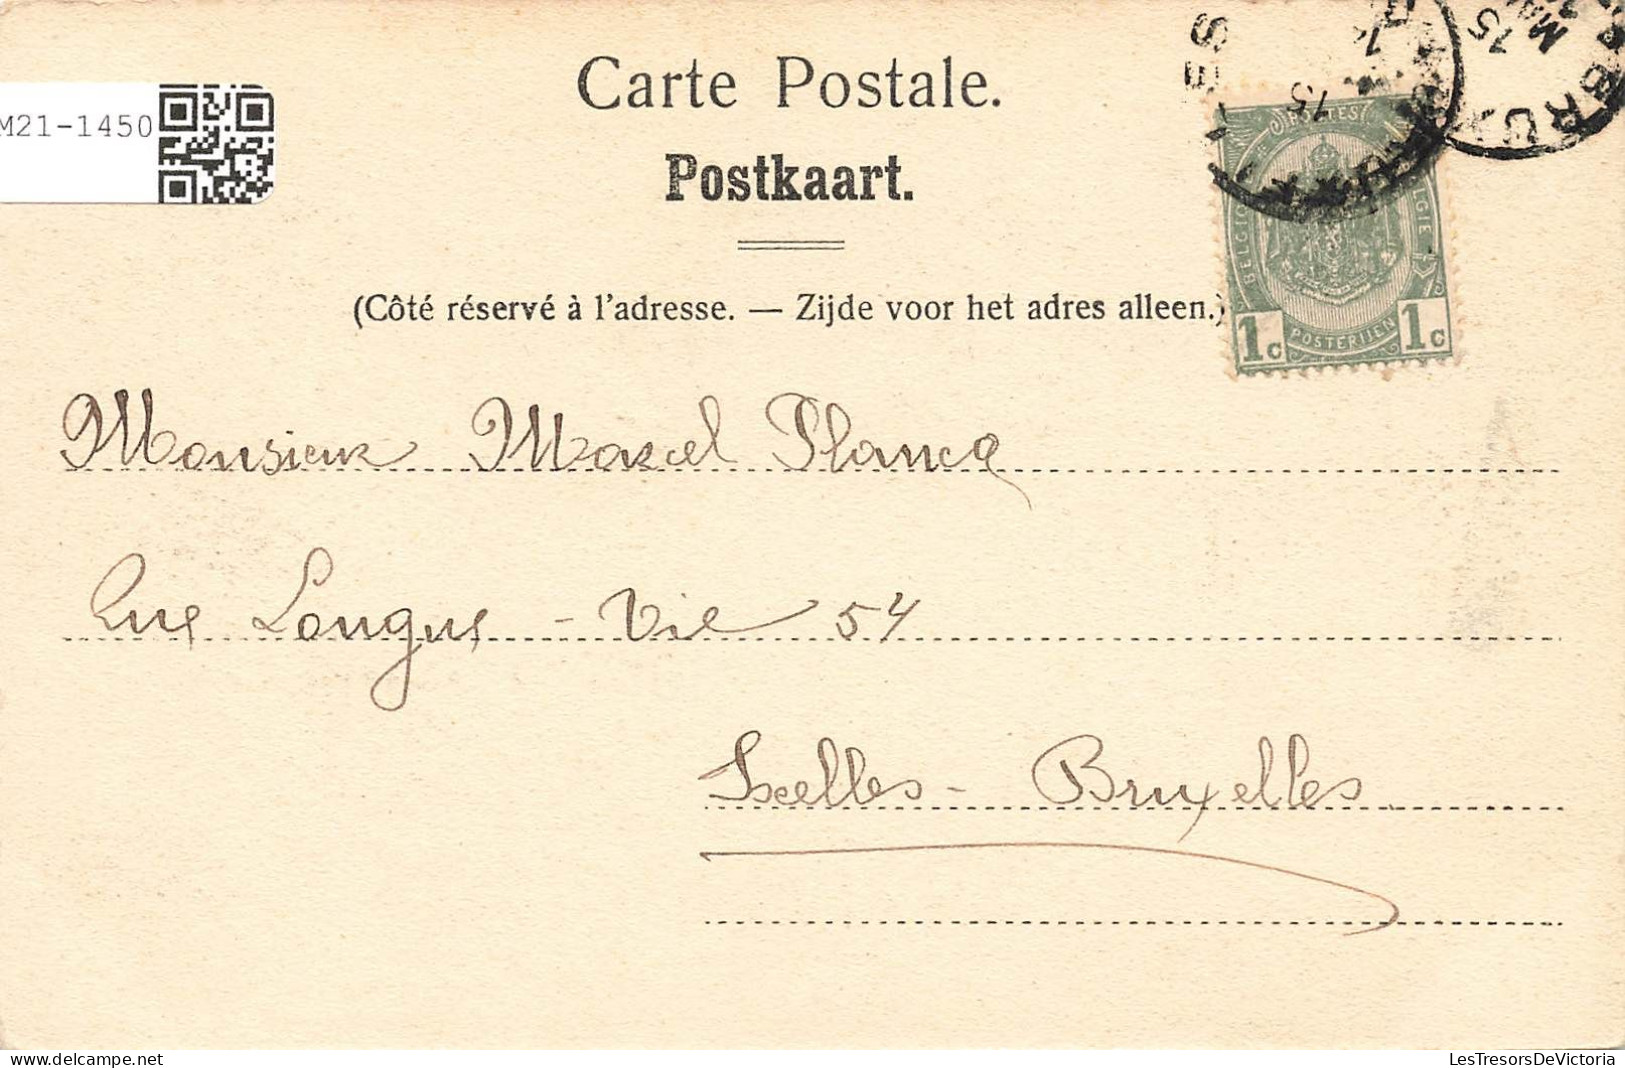 Carte Postale.
M21-1450
Postkaart.
POSTES
BELGIQUE
BELGIE
(Côté réservé à l'adresse. — Zijde voor het adres alleen.)
1c POSTERIJEN 1c
Monsieur Marcel Plancq
Rue Longue - Vie 54
Ixelles - Bruxelles
www.delcampe.net
LesTresorsDeVictoria